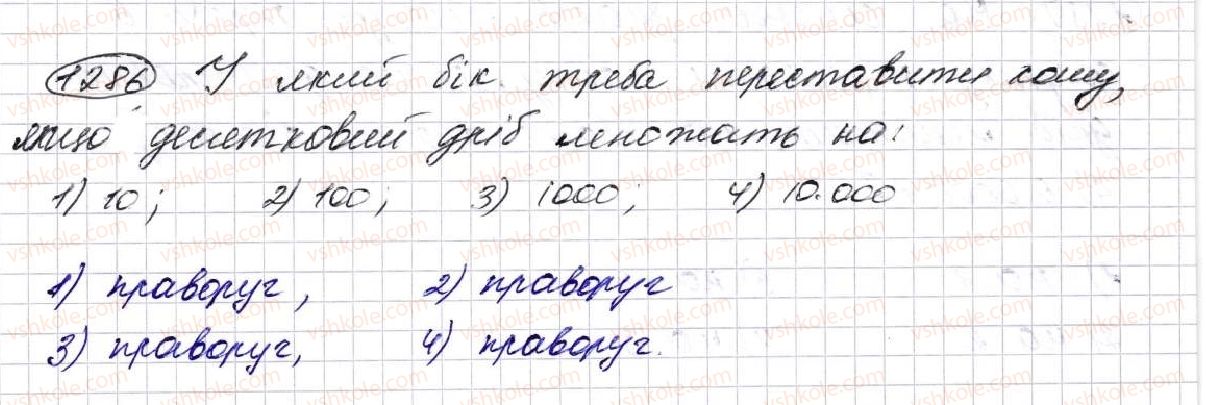 1286 У який бік треба переставити кому,
якщо десятковий дріб множать на:
1) 10; 2) 100; 3) 1000; 4) 10.000
1) праворуч, 2) праворуч
3) праворуч, 4) праворуч.